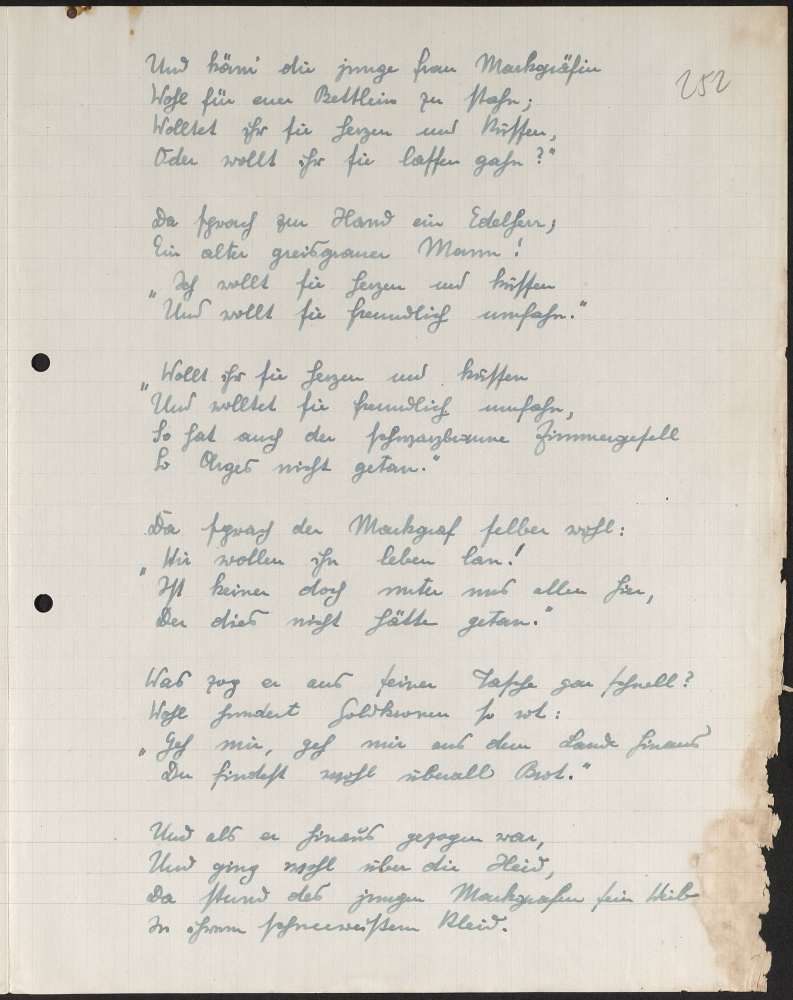 252
Und käm' die junge Frau Markgräfin
Wohl für euer Bettlein zu stahn;
Wolltet ihr sie herzen und küssen,
Oder wollt ihr sie lassen gahn?"
Da sprach zur Hand ein Edelherr;
Ein alter greisgrauer Mann!
"Ich wollt sie herzen und küssen
Und wollt sie freundlich umfahn."
"Wollt ihr sie herzen und küssen
Und wolltet sie freundlich umfahn,
So hat auch der schwarzbraune Zimmergesell
So Arges nicht getan."
Da sprach der Markgraf selber wohl:
"Wir wollen ihn leben lan!
Ist keiner doch unter uns allen hier,
Der dies nicht hätte getan."
Was zog er aus seiner Tasche gar schnell?
Wohl hundert Goldkronen so rot:
"Geh mir, geh mir aus dem Lande hinaus
Du findest wohl überall Brot."
Und als er hinaus gezogen war,
Und ging wohl über die Heid,
Da stund des jungen Markgrafen sein Weib
In ihrem schneeweißem Kleid.